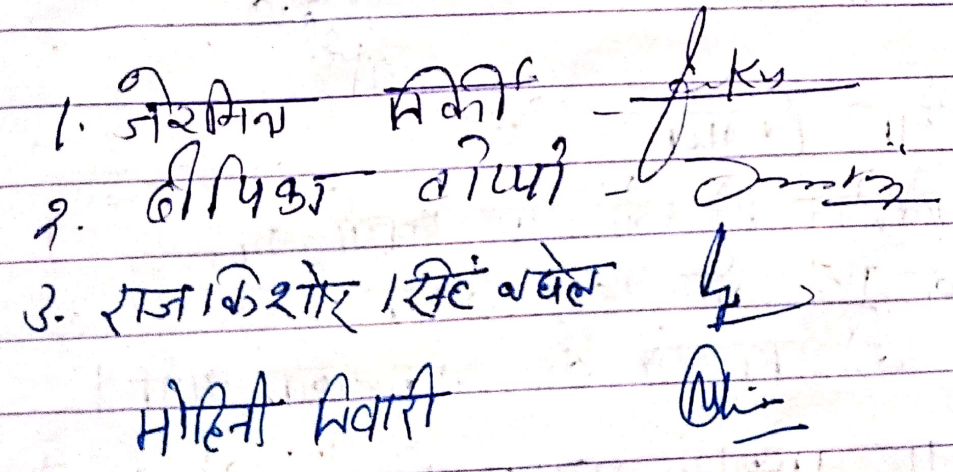 1. जेरमिन तिर्की -
2. दीपिका तोप्पो -
3. राजकिशोर सिंह बघेल
मोहिनी तिवारी